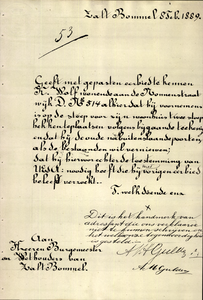 Zalt Bommel 1889.
53
Geeft met gepasten eerbied te kennen
N. Wolf wonende aan de Nonnenstraat
wijk D. No 514 alhier dat hij voornemens
is op de stoep voor zijn woonhuis twee stoep
hekken te plaatsen volgens bijgaande teekening
en dat hij de oude
als de bestaanden wil vernieuwen;
dat hij hiervoor echter de toestemming van
UEdA: noodig heeft die hij bij dezen eerbied
beleefd verzoekt.
T. welk doende enz.
Dit is het handmerk van
adressant die ons verklaarde
niet te kunnen schrijven en
het welk in onze tegenwoordigheid
is gesteld.
Aan
Heeren Burgemeester
en Wethouders van
Zalt Bommel.